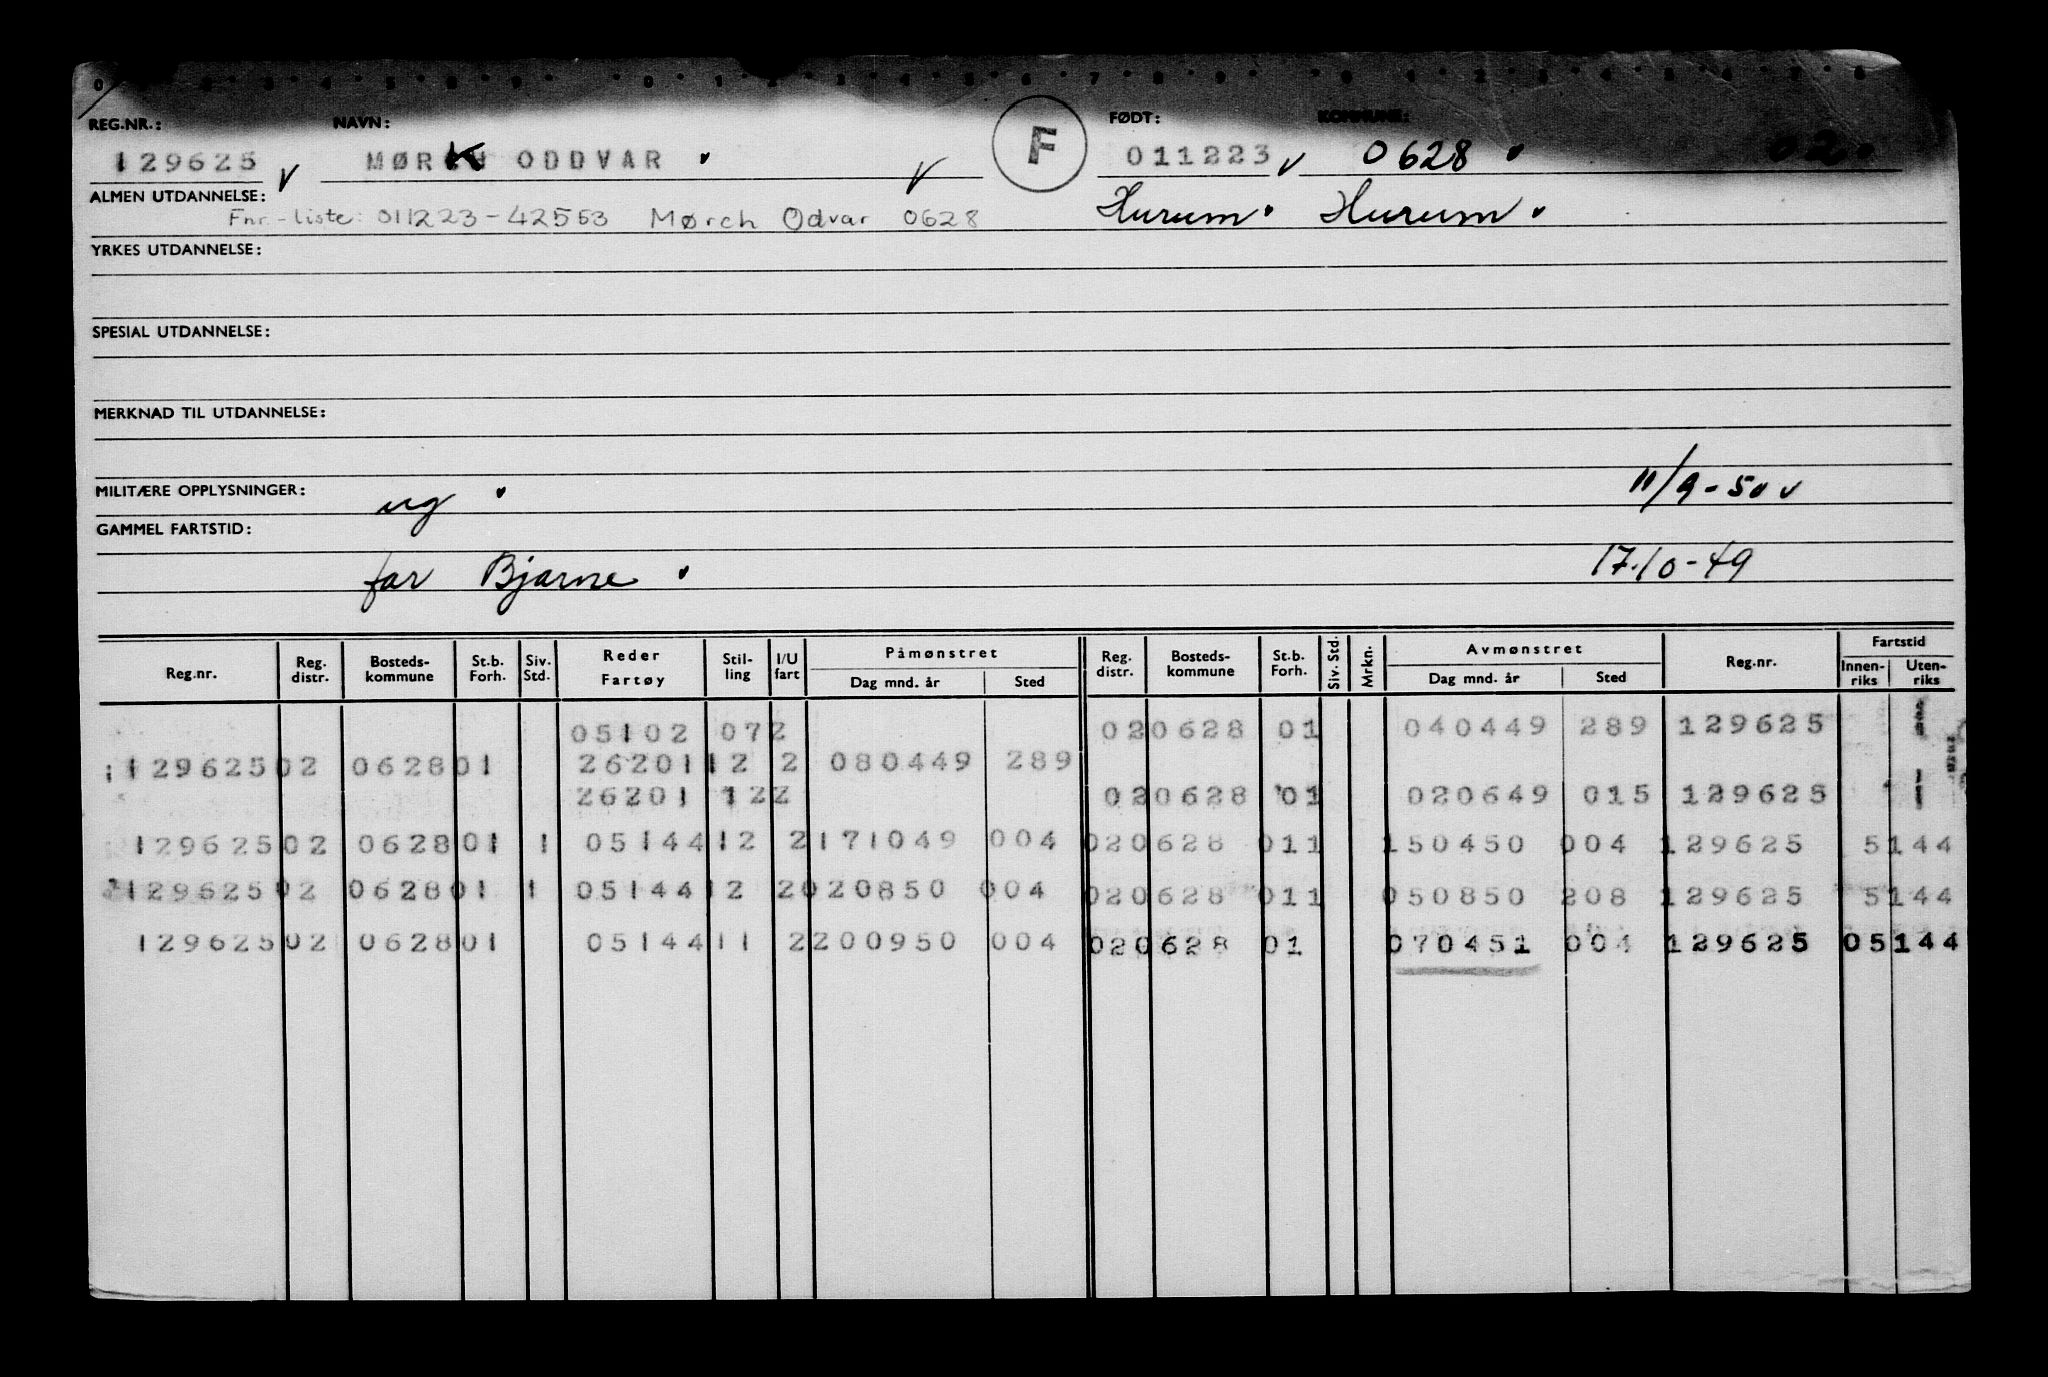 REG.NR.: NAVN: F FØDT: KOMMUNE:
129625 MØRK ODDVAR 011223 0628 02
ALMEN UTDANNELSE: Hurum Hurum
Fnr.-liste: 011223-42553 Mørch Odvar 0628
YRKES UTDANNELSE:
SPESIAL UTDANNELSE:
MERKNAD TIL UTDANNELSE:
MILITÆRE OPPLYSNINGER: ug 11/9-50
GAMMEL FARTSTID:
far Bjarne 17.10-49
Reg.nr. Reg. distr. Bosteds-kommune St.b. Forh. Siv. Std. Reder Fartøy Stil-ling I/U fart Påmønstret Dag mnd. år Sted Reg. distr. Bosteds-kommune St.b. Forh. Siv. Std. Mrkn. Avmønstret Dag mnd. år Sted Reg.nr. Fartstid Innen-riks Uten-riks
05102 072 020628 01 040449 289 129625
129625 02 0628 01 26201 12 2 080449 289
26201 122 020628 01 020649 015 129625
129625 02 0628 01 1 05144 12 2 171049 004 020628 011 150450 004 129625 5144
129625 02 0628 01 1 05144 12 2 020850 004 020628 011 050850 208 129625 5144
129625 02 0628 01 05144 11 2 200950 004 020628 01 070451 004 129625 05144